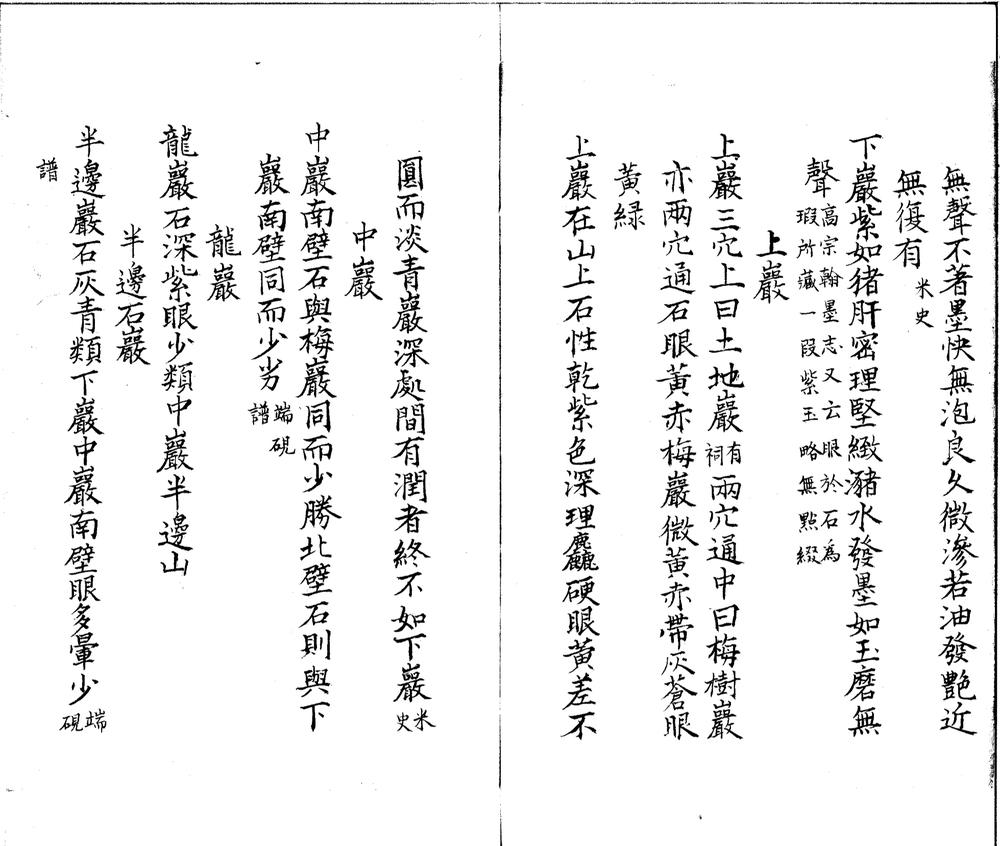 無聲不著墨快無泡良久微滲若油發艷近
無復有米史
下巖紫如猪肝密理堅緻瀦水發墨如玉磨無
聲高宗翰墨志又云眼於石為瑕所藏一段紫玉略無點綴
上巖
上巖三穴上曰土地巖有祠兩穴通中曰梅樹巖
亦兩穴通石眼黃赤梅巖微黃赤帶灰蒼眼
黃緑
上巖在山上石性乾紫色深理麤硬眼黃差不
圓而淡青巖深處間有潤者終不如下巖米史
中巖
中巖南壁石與梅巖同而少勝北壁石則與下
巖南壁同而少劣端硯譜
龍巖
龍巖石深紫眼少類中巖半邊山
半邊石巖
半邊巖石灰青類下巖中巖南壁眼多暈少端硯
譜